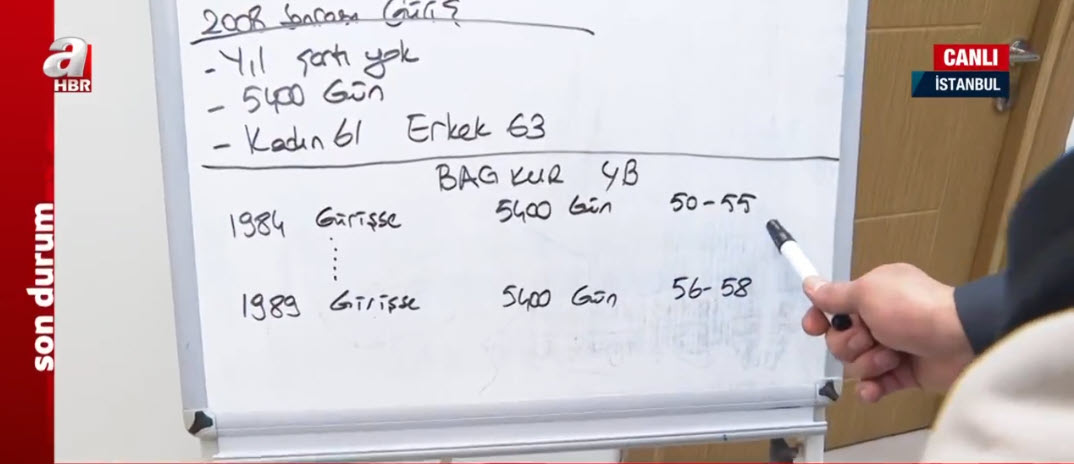 a
HBR
son durum
CANLI
İSTANBUL
2008 Sonrası Giriş
- Yıl şartı yok
- 5400 Gün
- Kadın 61 Erkek 63
BAGKUR 4B
1984 Girişse 5400 Gün 50-55
1989 Girişse 5400 Gün 56-58